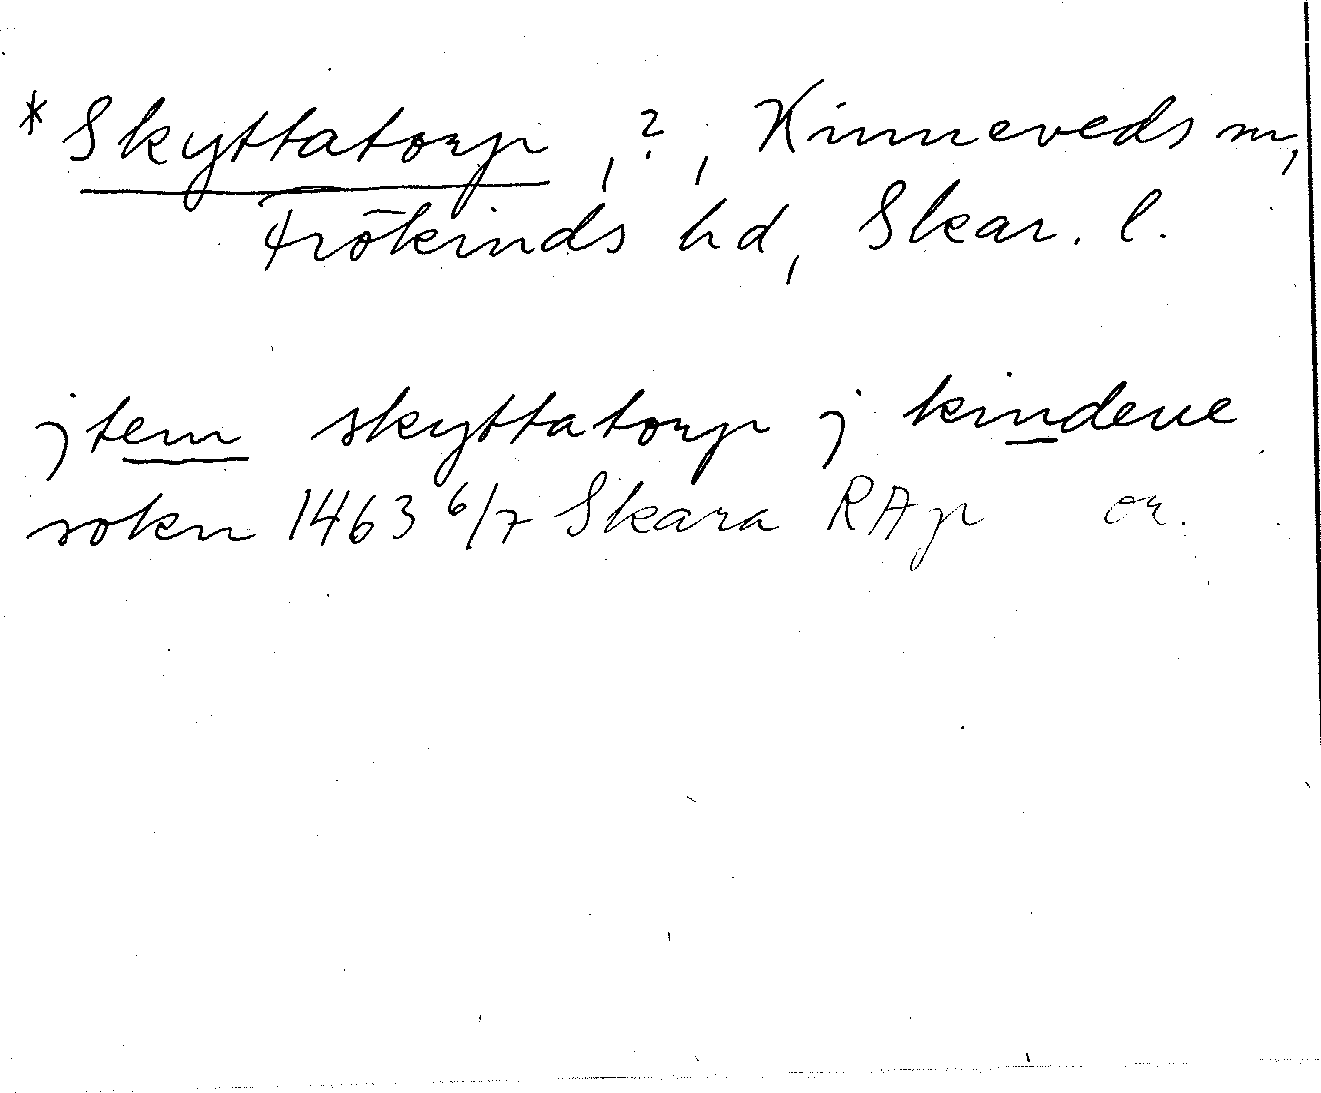 *Skyttatorp, ?, Kinneveds sn,
Frökinds hd, Skar. l.
jtem skyttatorp j kindeue
sokn 1463 6/7 Skara RAp or.